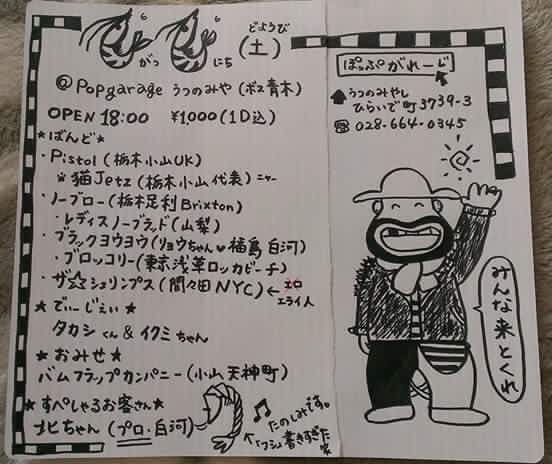 がつ にち どようび(土)
@Popgarage うつのみや(ボス青木)
OPEN 18:00 ¥1000(1D込)
★ばんど★
・Pistol(栃木小山UK)
猫Jetz(栃木小山代表)ニャー
・ノーブロー(栃木足利Brixton)
・レディスノーブラッド(山梨)
・ブラックヨウヨウ(リョウちゃん♥福島白河)
・ブロッコリー(東京浅草ロッカビーチ)
・ザ☆シュリンプス(間々田NYC)←エロ
エライ人
★でぃーじぇい★
タカシくん&イクミちゃん
★おみせ★
バムフラップカンパニー(小山天神町)
★すぺしゃるお客さん★
ナヒちゃん(プロ・白河)
♪たのしみです。
書きすぎた
ぱっぷがれーじ
うつのみやし
ひらいで町3739-3
☎028-664-0345
みんな来とくれ